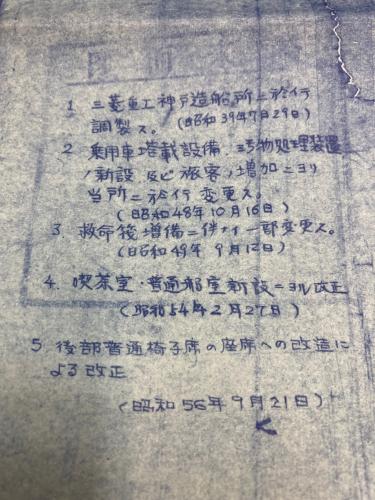 1 三菱重工神戸造船所ニ於イテ
調製ス。 (昭和39年7月29日)
2 乗用車塔載設備、汚物処理装置
ノ新設 及ビ 旅客ノ増加ニヨリ
当所ニ於イテ変更ス。
(昭和48年10月16日)
3. 救命筏増備ニ伴ナイ一部変更ス。
(昭和49年9月12日)
4. 喫茶室・普通部屋新設ニヨル改正
(昭和54年2月27日)
5. 後部普通椅子席の座席への改造に
よる改正
(昭和56年9月21日)